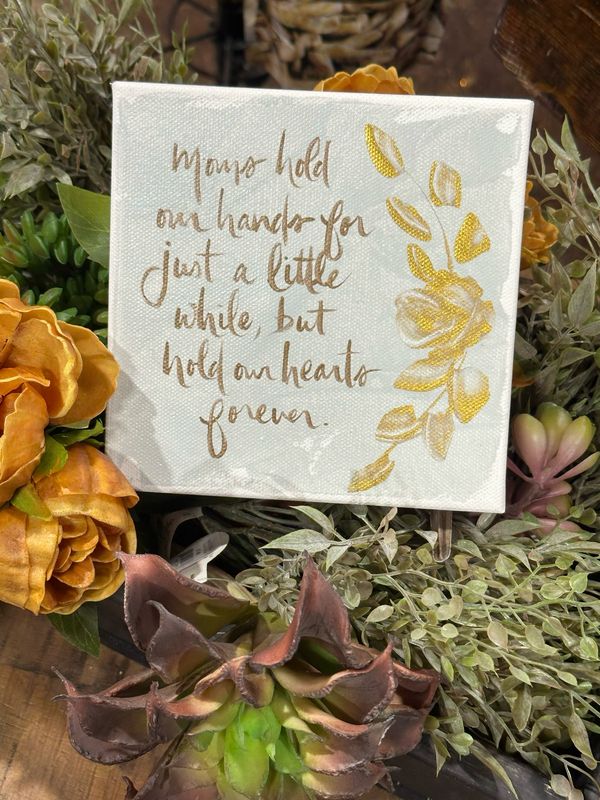 Moms hold
our hands for
just a little
while, but
hold our hearts
forever.